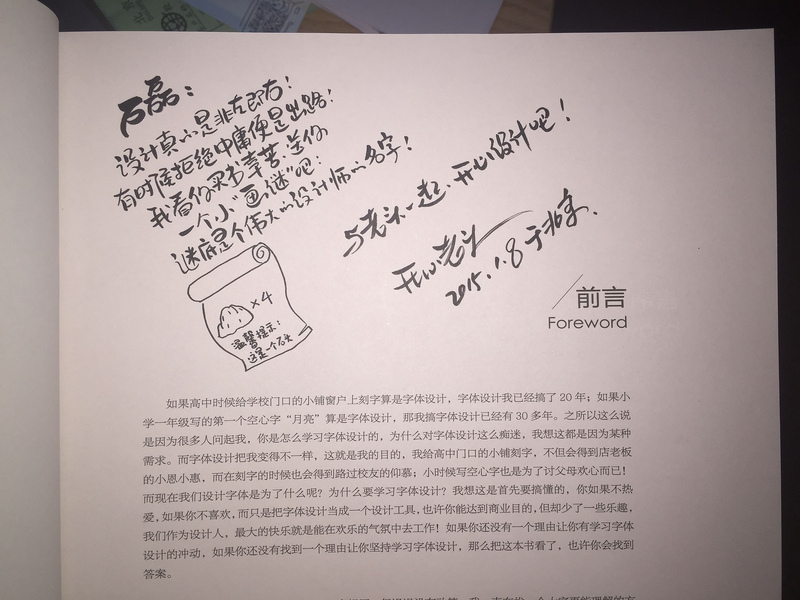 石磊：
设计真的是非左即右！
有时候拒绝中庸便是出路！
我看你买书辛苦，送你
一个小“画谜”吧：
谜底是个伟大的设计师的名字！
×4
温馨提示：
这是一个石头
与老头一起，开心设计吧！
开心老头
2015.1.8于北京.
前言
Foreword
如果高中时候给学校门口的小铺窗户上刻字算是字体设计，字体设计我已经搞了 20 年；如果小
学一年级写的第一个空心字“月亮”算是字体设计，那我搞字体设计已经有 30 多年。之所以这么说
是因为很多人问起我，你是怎么学习字体设计的，为什么对字体设计这么痴迷，我想这都是因为某种
需求。而字体设计把我变得不一样，这就是我的目的，我给高中门口的小铺刻字，不但会得到店老板
的小恩小惠，而在刻字的时候也会得到路过校友的仰慕；小时候写空心字也是为了讨父母欢心而已！
而现在我们设计字体是为了什么呢？为什么要学习字体设计？我想这是首先要搞懂的，你如果不热
爱，如果你不喜欢，而只是把字体设计当成一个设计工具，也许你能达到商业目的，但却少了一些乐趣，
我们作为设计人，最大的快乐就是能在欢乐的气氛中去工作！如果你还没有一个理由让你有学习字体
设计的冲动，如果你还没有找到一个理由让你坚持学习字体设计，那么把这本书看了，也许你会找到
答案。